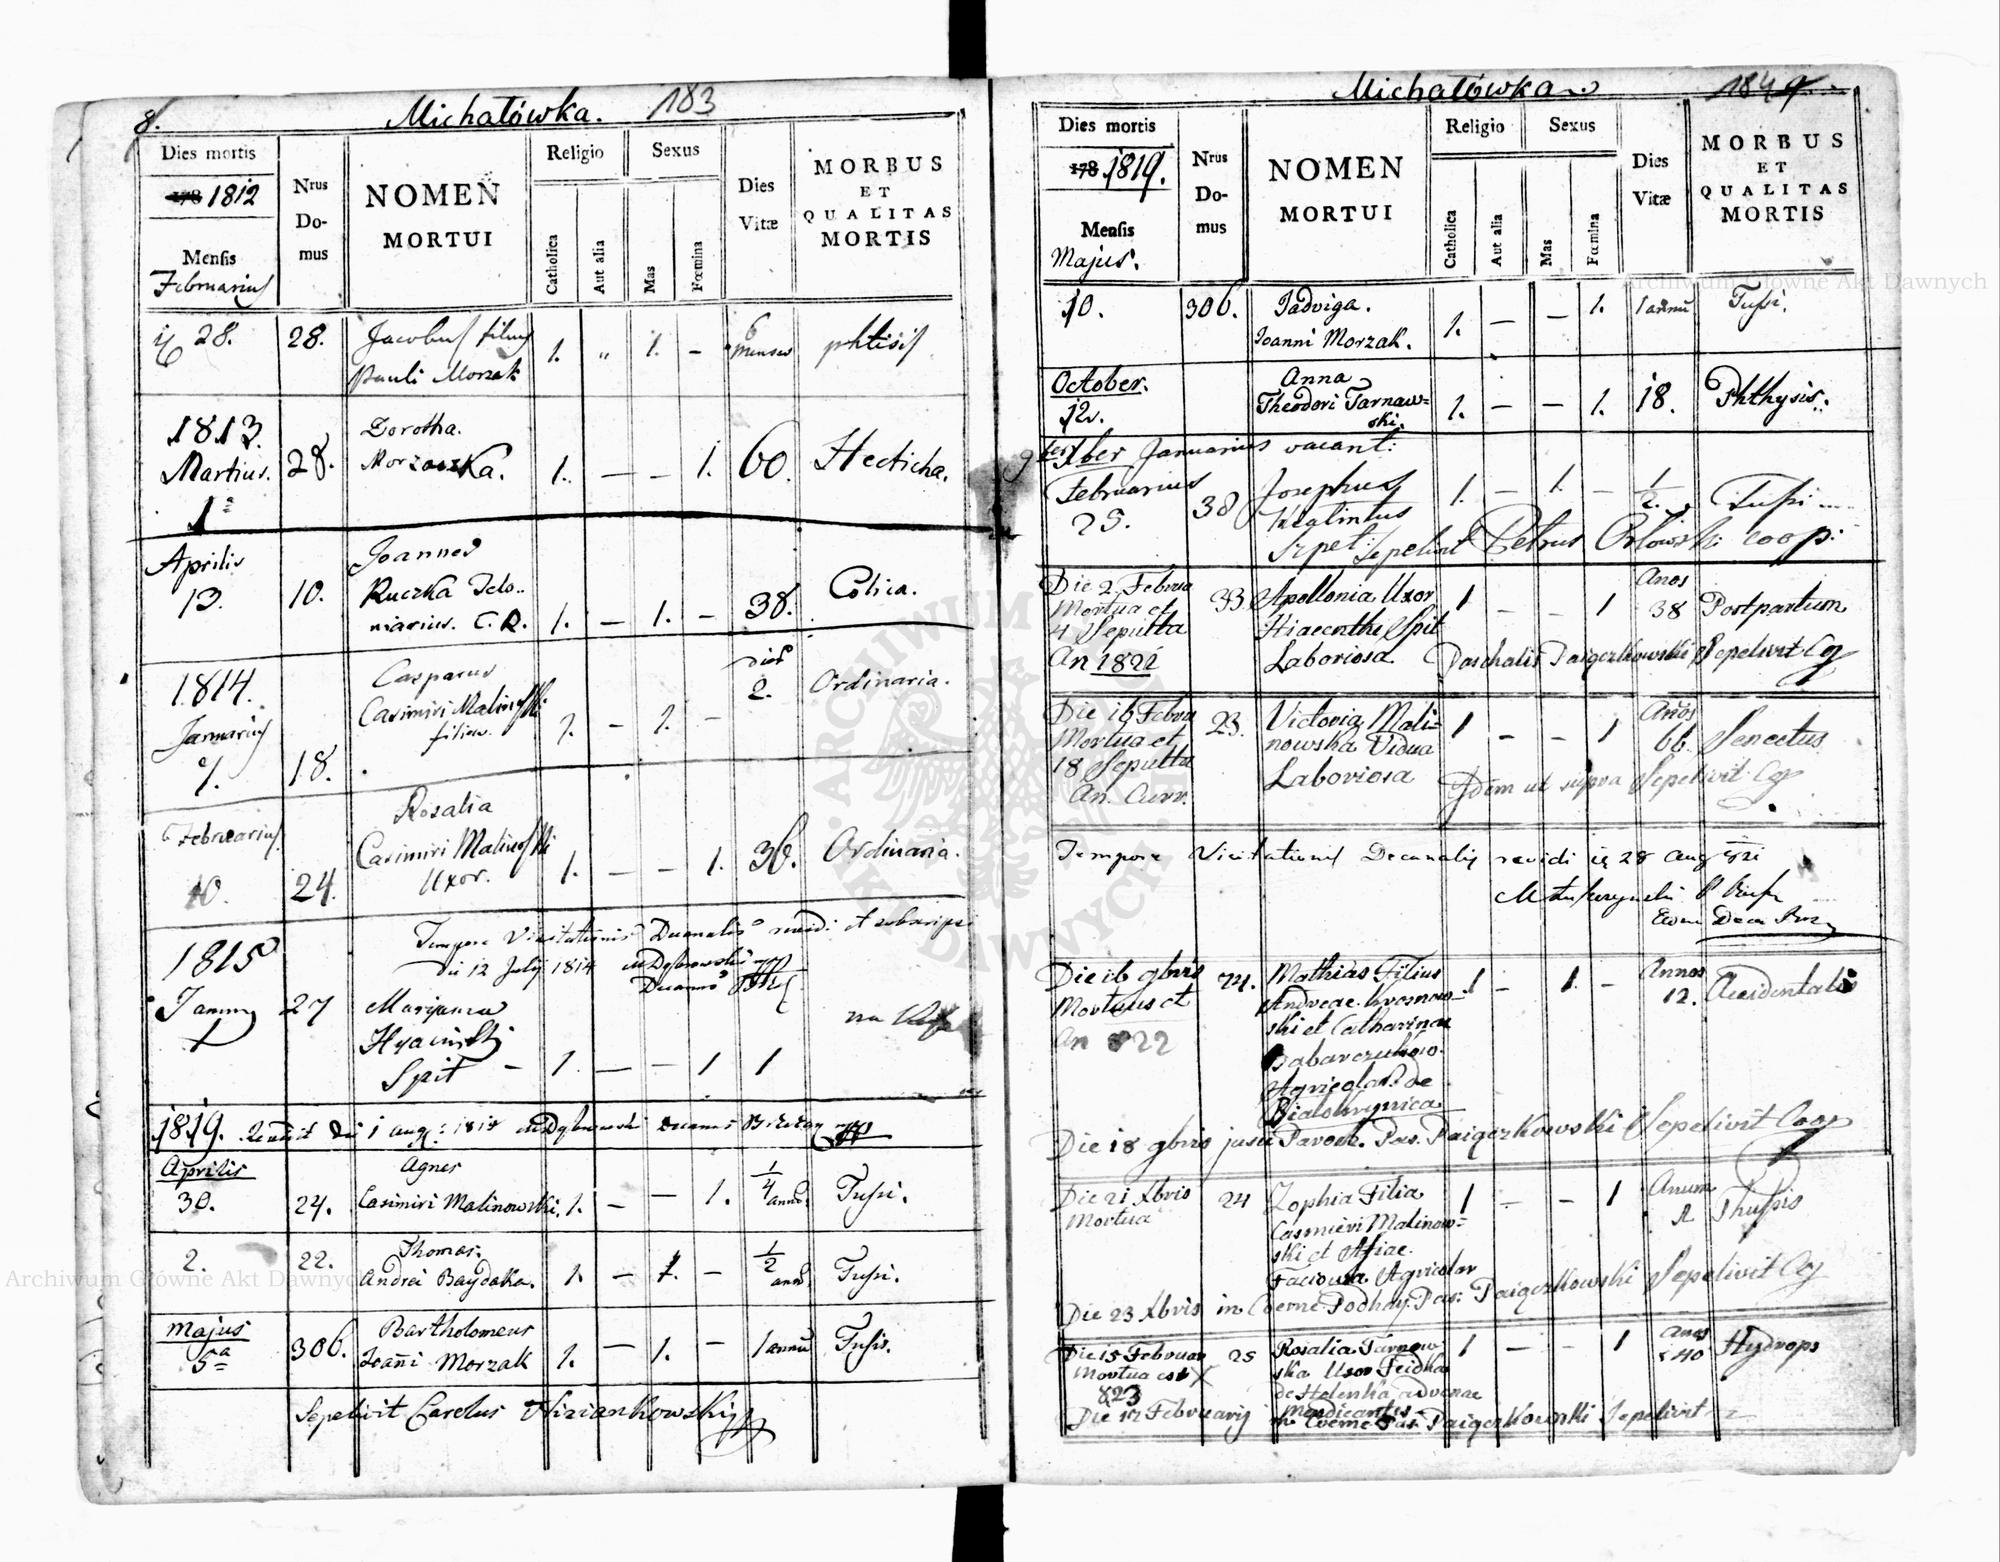 8. Michałówka. 183
Dies mortis
178 1812
Mensis
Februarius
Nrus
Do-
mus
NOMEN
MORTUI
Religio
Catholica
Aut alia
Sexus
Mas
Fœmina
Dies
Vitæ
MORBUS
ET
QUALITAS
MORTIS
28. 28. Jacobus filius
Pauli Morzak 1. „ 1. – 6
Menses phtisis
1813.
Martius.
1a 28. Dorotha.
Morzaczka. 1. – – 1. 60. Hecticha.
Aprilis
13. 10. Joannes
Ruczka Telo..
niarius. C. R. 1. – 1. – 38. Colica.
1814.
Januarius
7. 18. Casparus
Casimiri Malinoski
filius. 1. – 1. – dies
2. Ordinaria.
Februarius
10. 24. Rosalia
Casimiri Malinoski
Uxor. 1. – – 1. 36. Ordinaria.
Tempore Visitationis Decanalis revidi et subscripsi
die 12 July 1814
1815
27 Marijanna
Hyacinthi
Spit – 1. – – 1 1
1819. die 1 aug: 181
Aprilis
30. 24. Agnes
Casimiri Malinowski. 1. – – 1. 1/4
anno. Tussi.
2. 22. Thomas.
Andrei Baydaka. 1. – 1. – 1/2
anno Tussi.
Majus
5a 306. Bartholomeus
Joañi Morzak 1. – 1. – 1 annu Tussis.
Sepelivit Carolus Niziankowski
Michałówka
Dies mortis
178 1819.
Mensis
Majus.
Nrus
Do-
mus
NOMEN
MORTUI
Religio
Catholica
Aut alia
Sexus
Mas
Fœmina
Dies
Vitæ
MORBUS
ET
QUALITAS
MORTIS
10. 306. Jadviga.
Joanni Morzak. 1. – – 1. 1 annu Tussi.
October.
12. Anna
Theodori Tarnaw=
ski. 1. – – 1. 18. Phthysis.
Xber Januarius vacant:
Februarius
25. 38 Josephus
1. – 1. – 1/2 Tussi
Sepelivit Petrus Orłowski Coop:
Die 2 Februa
Mortua et
4 Sepulta
An 1821 33. Apollonia Uxor
Hiacenthi Spit
Laboriosa 1 – – 1 Anos
38 Postpartum
Paschalis Paigczkowski Sepelivit
Die 16 Febru
Mortua et
18 Sepulta
An. Curr. 23. Victoria Mali=
nowska Vidua
Laboriosa 1 – – 1 Anos
66. Senectus
Idem ut supra Sepelivit
Tempore Visitationis Decanalis revidi 28 Aug 821
Die 16 9bris
Mortuus et
An 822 24. Mathias Filius
Andreae Krosnow=
ski et Catharinae
Agricolar. de
Białokrynica 1 – 1. – Annos
12. Accidentalis
Die 18 9bris jussu Paroch. Pas. Paigczkowski Sepelivit Coop
Die 21 Xbris
Mortua 24 Zophia Filia
Casmieri Malinow=
ski et
Agricolar 1 – – 1 Anum
Thussis
Die 23 Xbris in Coeme. Podhay. Pas: Paigczkowski Sepelivit
Die 15 Februar
Mortua est
823 25 Rosalia Tarnow
ska Uxor Feidka
de Helenka advenae
Mendicantis 1 – – 1 Anos
40 Hydrops
Die 17 Februarij in Coeme Pas. Paigczkowski Sepelivit
Archiwum Główne Akt Dawnych
Archiwum Główne Akt Dawnych
ARCHIWUM GŁÓWNE AKT DAWNYCH